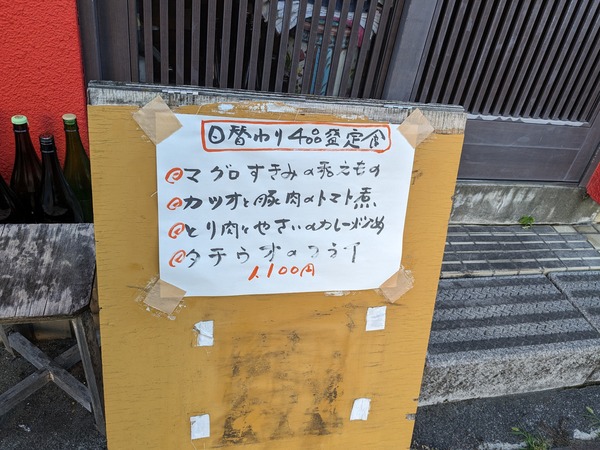 日替わり4品盛定食
マグロすきみの和えもの
カツオと豚肉のトマト煮
とり肉とやさいのカレー炒め
タチウオのフライ
1,100円